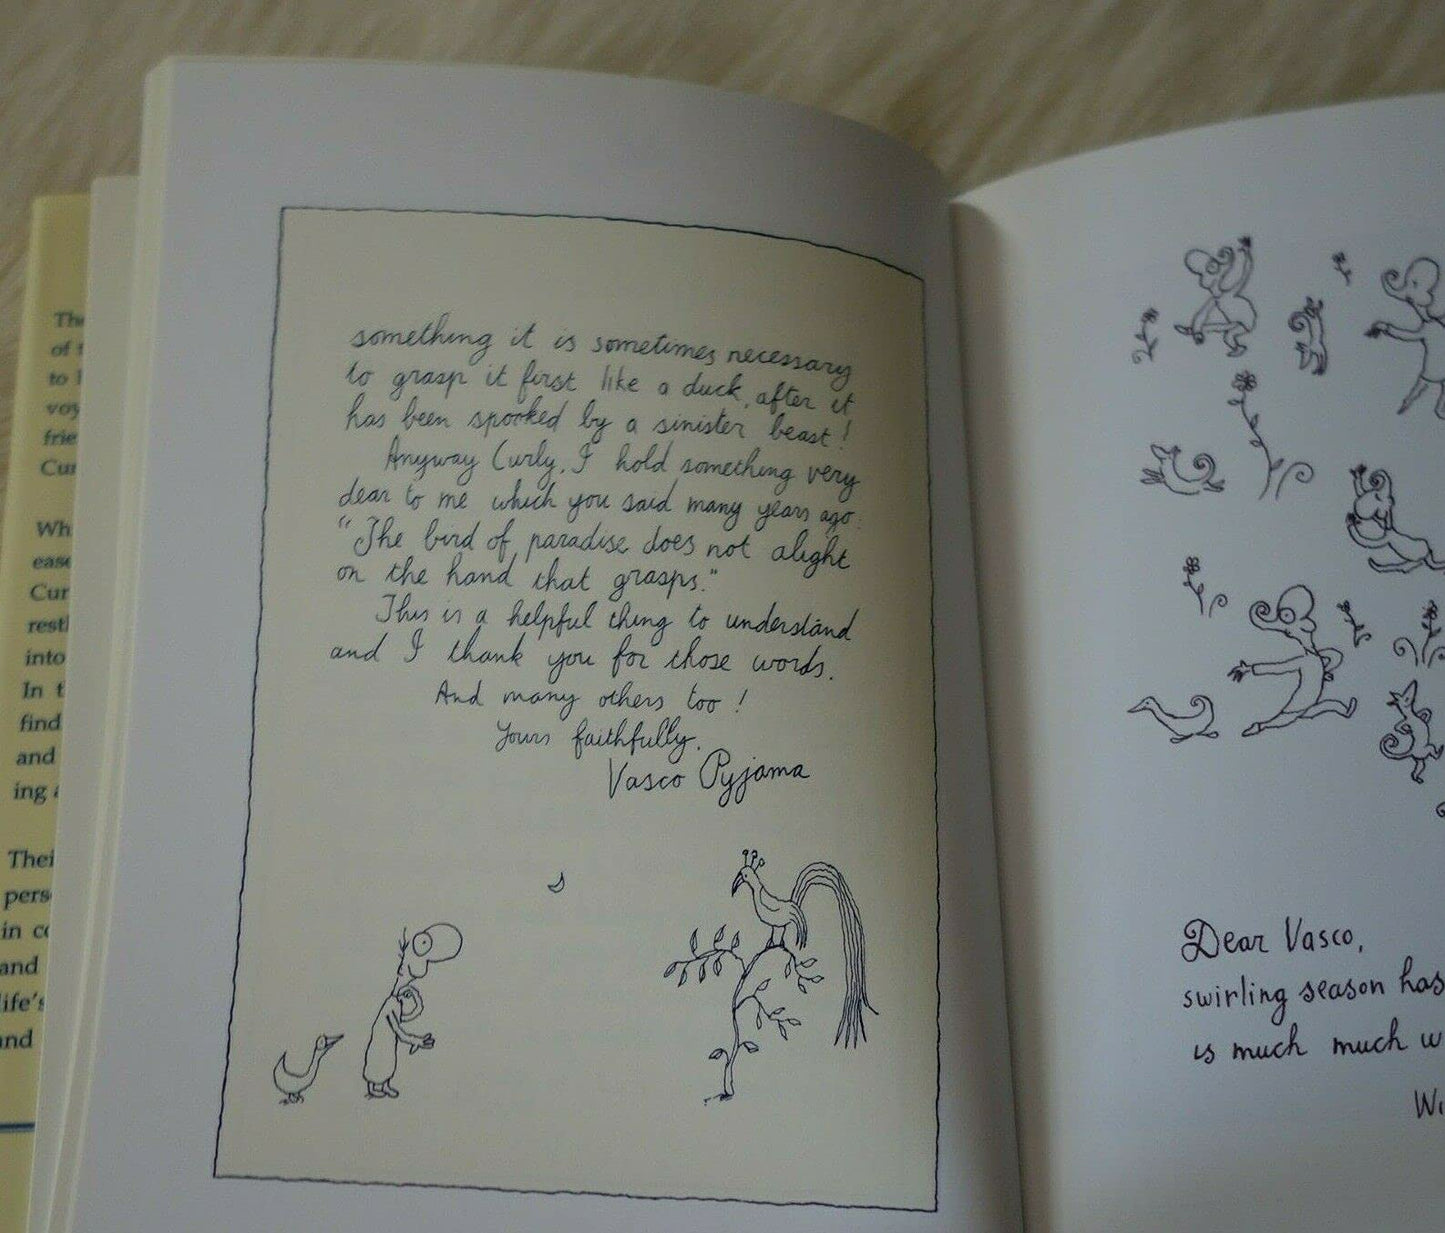 The
of t
to l
voy
frie
Cur
Wh
ease
Cur
restl
into
In t
find
and
ing a
Thei
pers
in co
and
life's
and
something it is sometimes necessary
to grasp it first like a duck, after it
has been spooked by a sinister beast!
Anyway Curly, I hold something very
dear to me which you said many years ago:
"The bird of paradise does not alight
on the hand that grasps."
This is a helpful thing to understand
and I thank you for those words.
And many others too!
Yours faithfully.
Vasco Pyjama
Dear Vasco,
swirling season has
is much much w
Wi